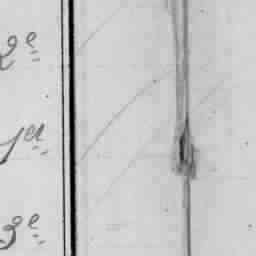 2e
1a
3e